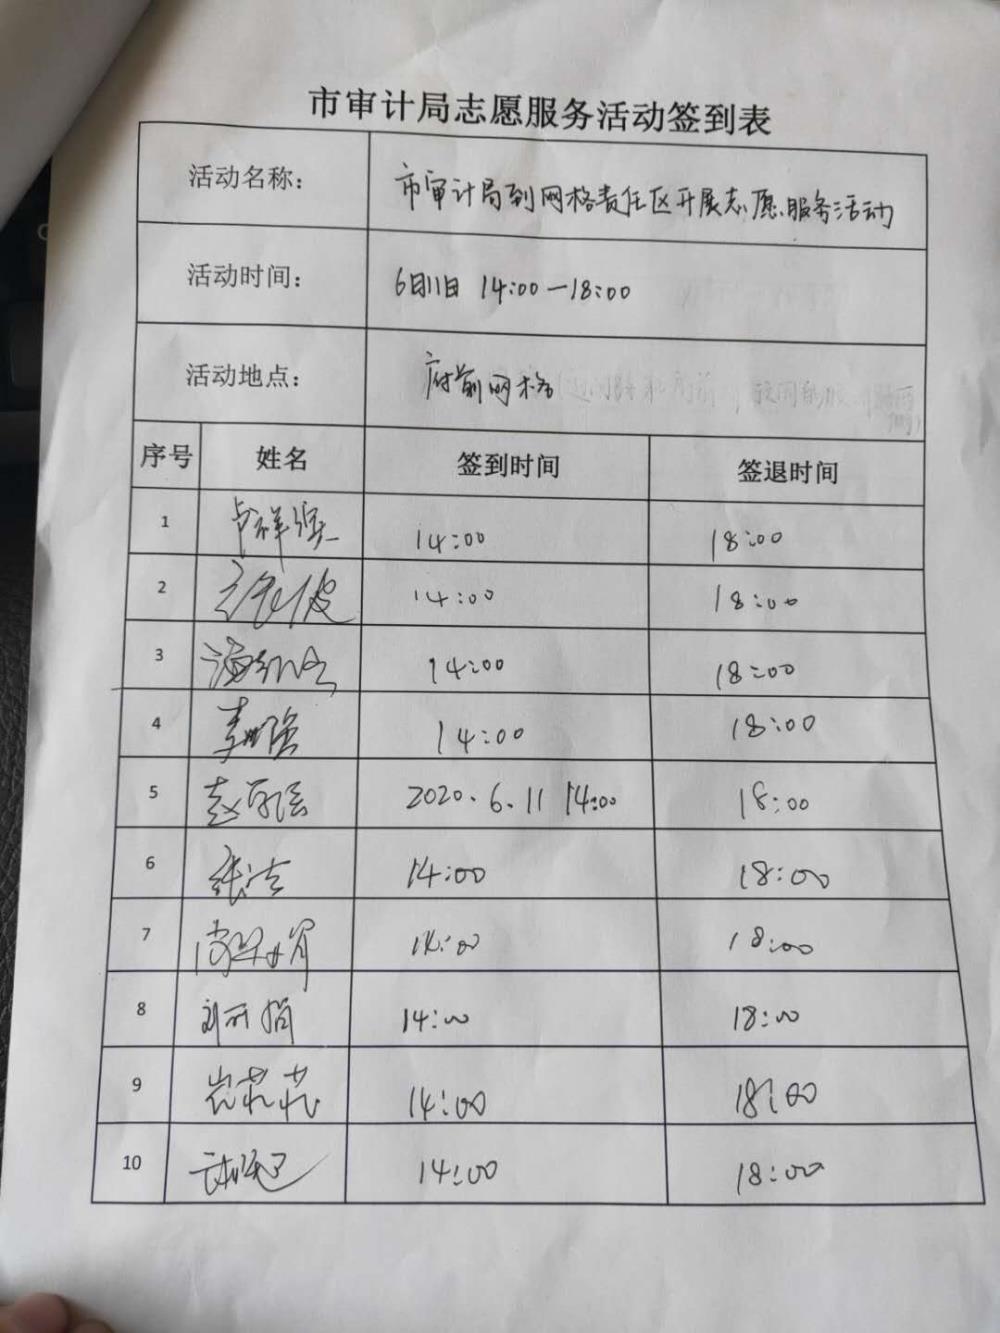 市审计局志愿服务活动签到表
活动名称： 市审计局到网格责任区开展志愿服务活动
活动时间： 6月11日 14:00—18:00
活动地点： 府前网格
序号 姓名 签到时间 签退时间
1 14:00 18:00
2 14:00 18:00
3 14:00 18:00
4 14:00 18:00
5 2020.6.11 14:00 18:00
6 张洁 14:00 18:00
7 14:00 18:00
8 14:00 18:00
9 14:00 18:00
10 14:00 18:00